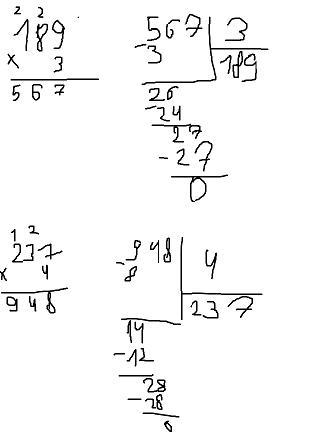 2 2
189
x 3
567
567 3
-3 189
26
-24
27
-27
0
1 2
237
x 4
948
948 4
-8 237
14
-12
28
-28
0